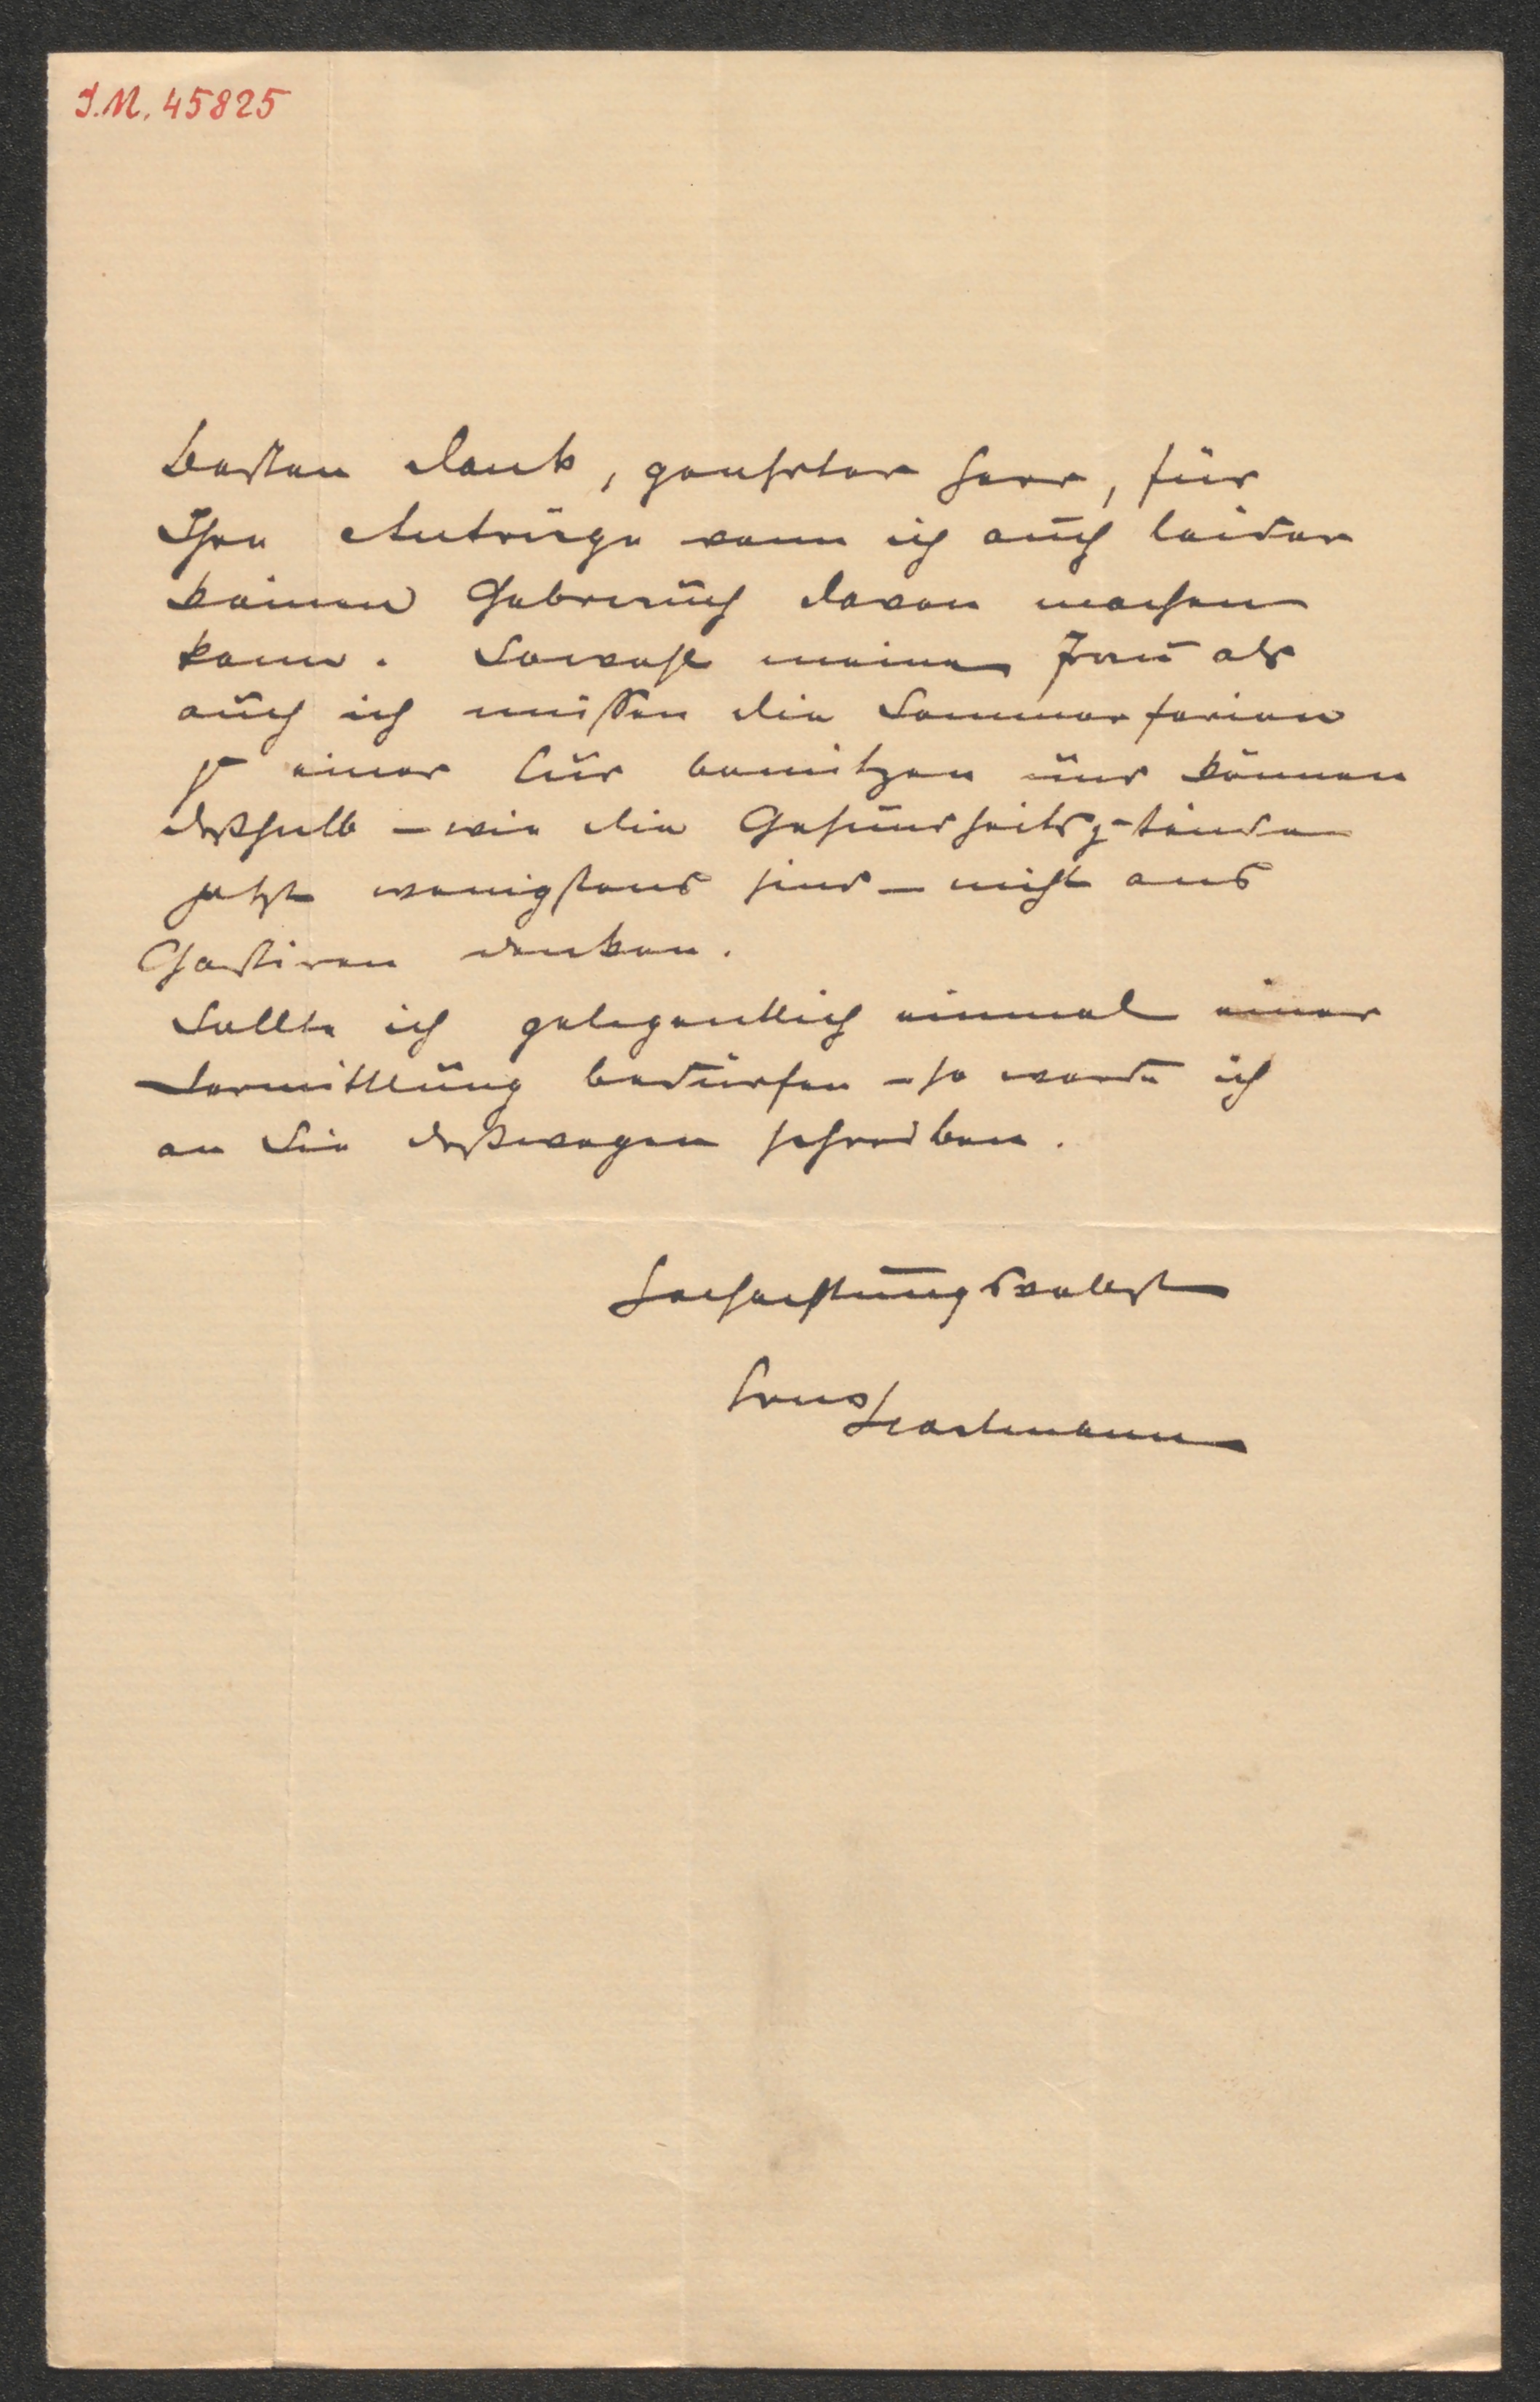 I.N. 45825
Besten Dank, geehrter Herr, für
Ihre Anträge wenn ich auch leider
keinen Gebrauch davon machen
kann. Sowohl meine Frau als
auch ich müssen die Sommerferien
zu einer Cur benützen und können
deßhalb – wie die Gesundheitszustände
jetzt wenigstens sind – nicht ans
Gastiren denken.
Sollte ich gelegentlich einmal einer
Vermittlung bedürfen – so werde ich
an Sie deßwegen schreiben.
Hochachtungsvollst
Ernst Hartmann